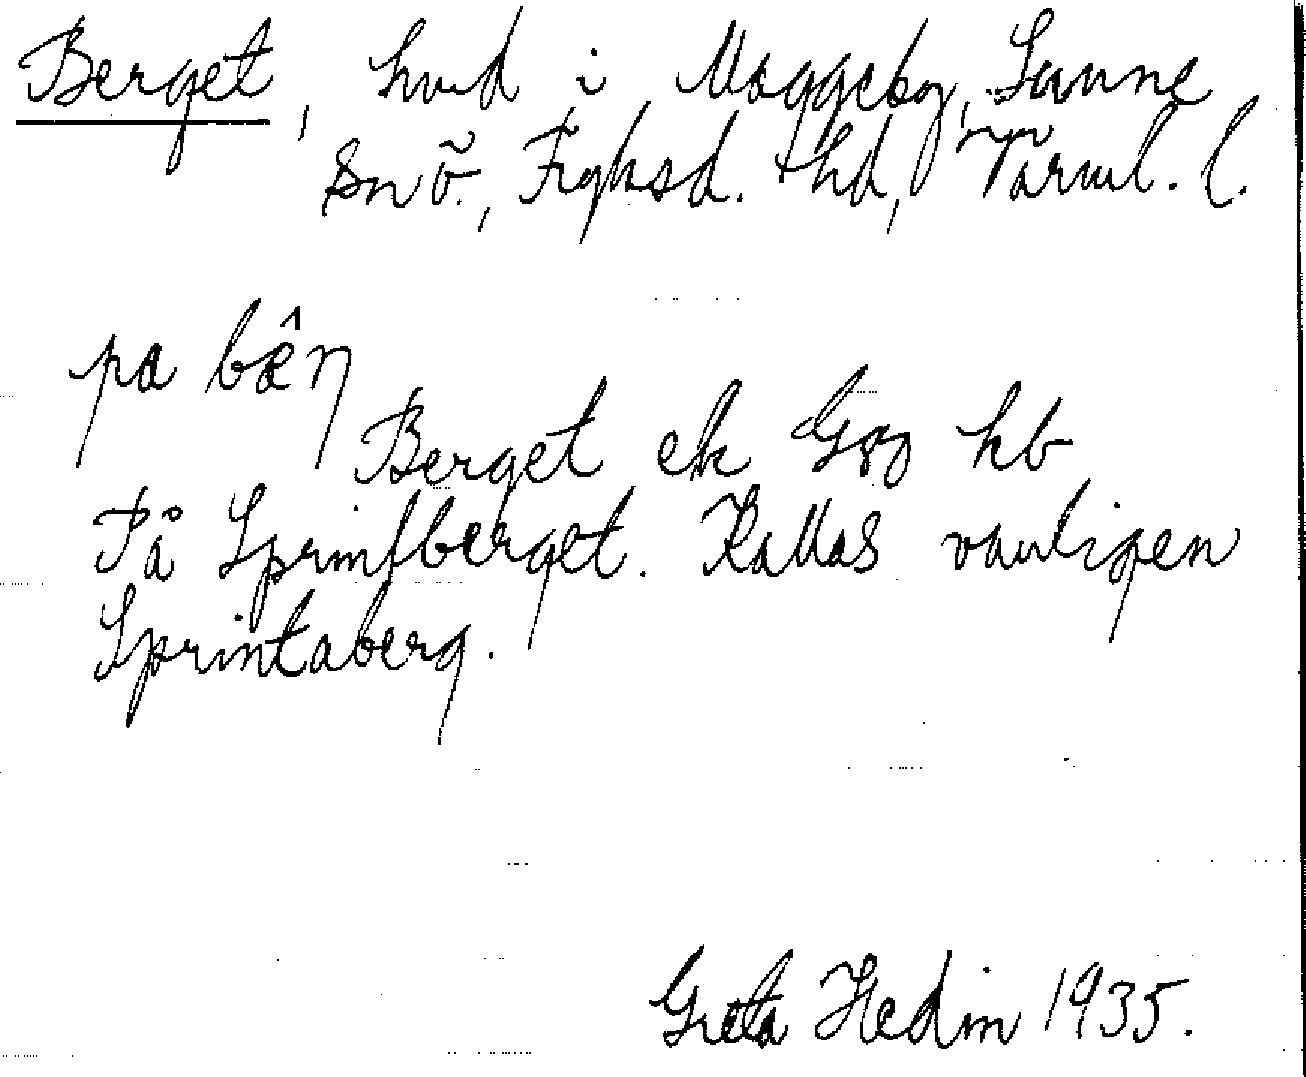 Berget, hmd i Moggeby, Sunne
sn Ö., Fryksd. hd, Värml. l.
pa bæ̂n
Berget ek G78 hb
På Sprintberget. Kallas vanligen
Sprintaberg.
Greta Hedin 1935.